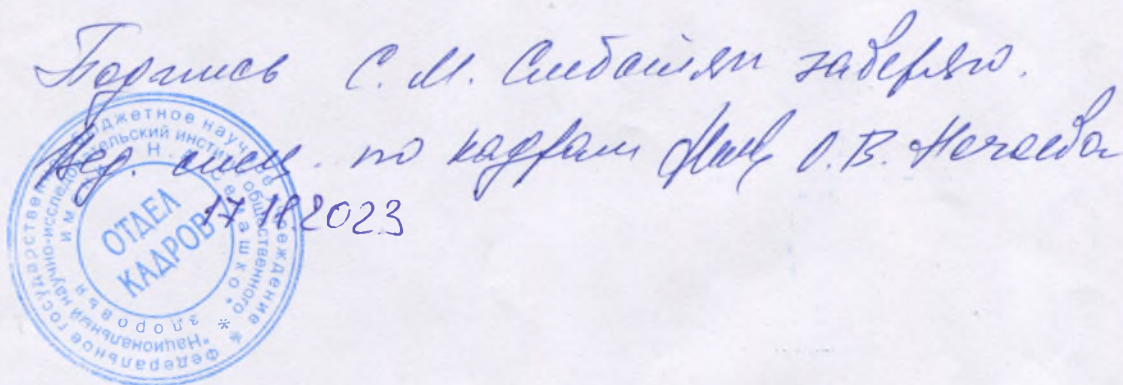 Подпись С. М. Смбатян заверяю.
Вед. спец. по кадрам О. В. Нечаева
17.11.2023
Федеральное государственное бюджетное научное учреждение *
"Национальный научно-исследовательский институт общественного
здоровья имени Н.А. Семашко" *
ОТДЕЛ
КАДРОВ